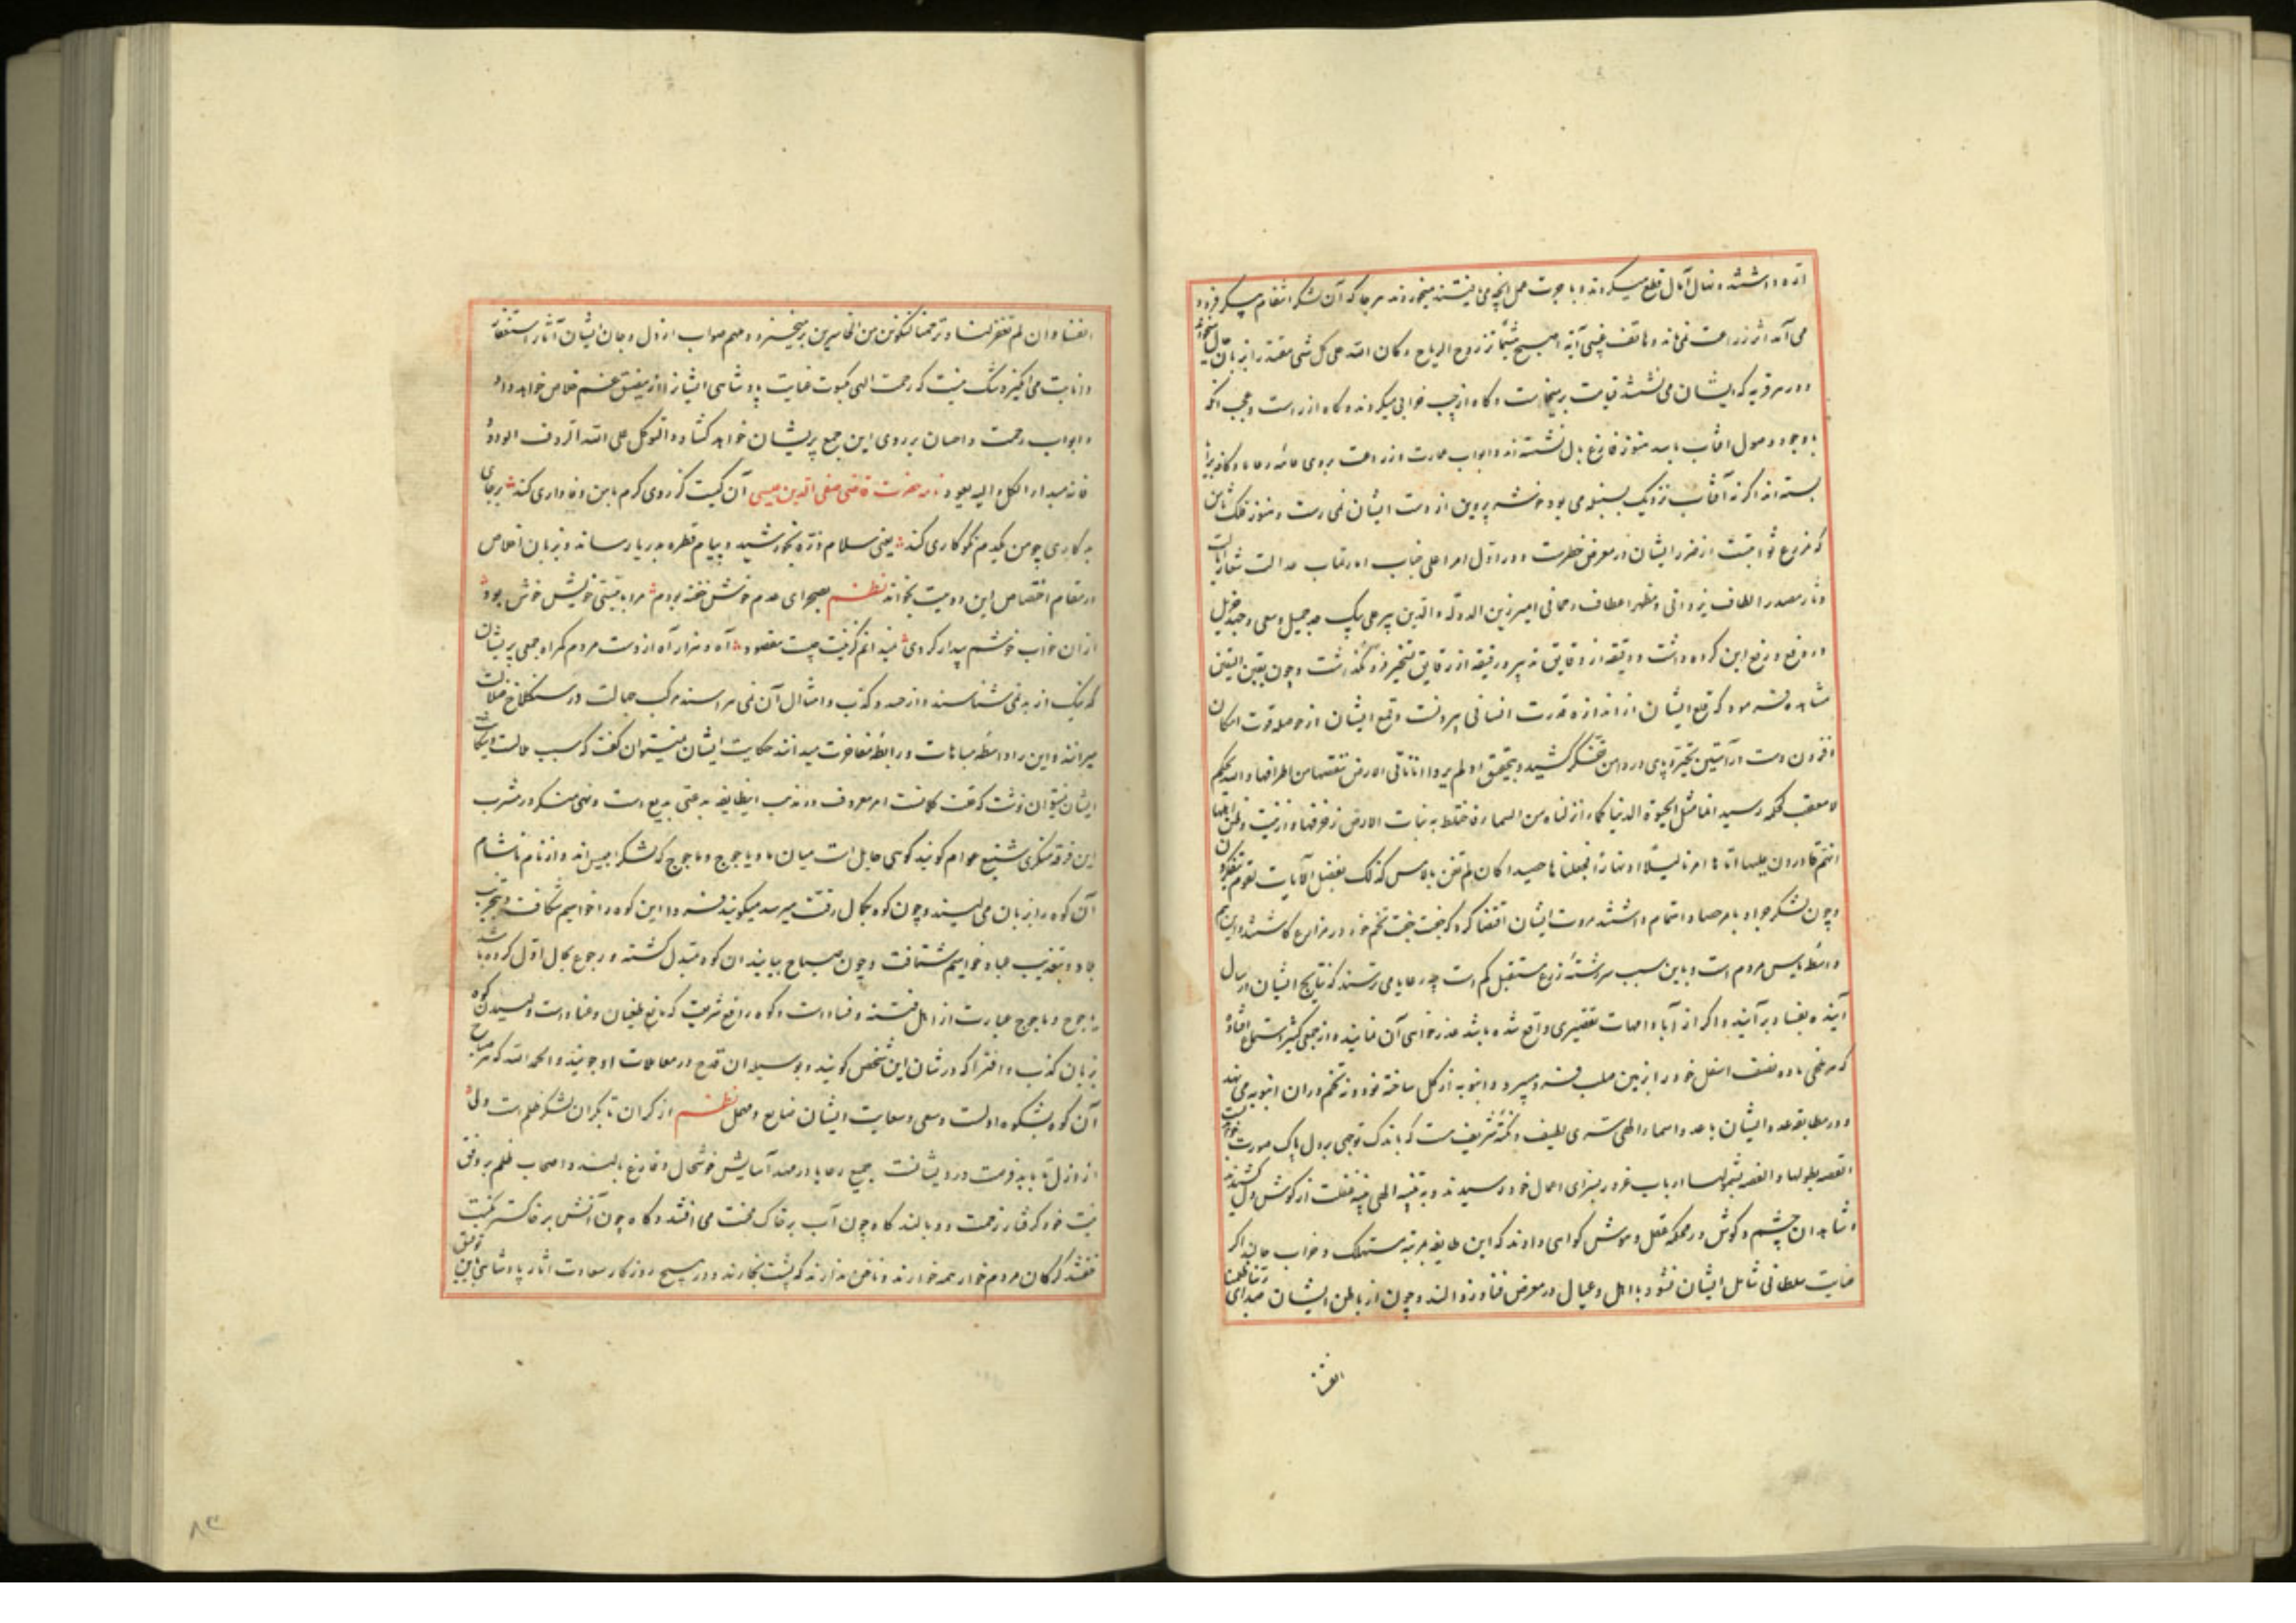 اره داشتند و نهال آمال قطع میکردند و با جوت عمل انچه می یافتند میخوردند هر جا که آن لشکر انتقام پیکر فرود
می آمد اثر زراعت نمی ماند و هاتف غیبی آیه اصبح هشیما تذروه الریاح و کان الله علی کل شی مقتدرا بزبان
و در هر قریه که ایشان می نشستند قیامت بر میخاست و کاه از چپ خرابی میکردند و کاه از راست و عجب انکه
با وجود وصول آفتاب باسد هنوز فارغ بال نشسته اند و ابواب عمارت و زراعت بروی عامه رعایا و کافه برایا
بسته اند اگر نه آفتاب نزدیک بسنبله می بود خوشه پروین از دست ایشان نمی رست و هنوز فلک
که مزرع ثوابتست از ضرر ایشان در معرض خطرست و در اول امرا علی جناب امارتماب عدالت شعار
دثار مصدر الطاف یزدانی و مظهر اعطاف رحمانی امیر زین الدوله و الدین پیر علی بیک جد جمیل و سعی و جهد جزیل
در دفع و رفع این کروه داشت و دقیقه از دقایق تدبیر و رقیقه از رقایق تسخیر فرو نگذاشت و چون بعین الیقین
مشاهده فرمود که قلع ایشان از اندازه قدرت انسانی بیرونست و قمع ایشان از حوصله قوت امکان
افزون دست در آستین تحیر و پای در دامن تفکر کشید و بتحقیق اولم یروا انا ناتی الارض ننقصها من اطرافها و الله یحکم
لا معقب لحکمه رسید انما مثل الحیوة الدنیا کماء انزلناه من السماء فاختلط به نبات الارض زخرفها و ازینت و ظن اهلها
انهم قادرون علیها اتاها امرنا لیلا او نهارا فجعلناها حصیدا کان لم تغن بالامس کذلک نفصل الآیات لقوم یتفکرون
و چون لشکر جراد بامر حصاد اهتمام داشتند مروت ایشان اقتضا کرد که جفت جفت تخم خود در مزارع کاشتند و این هم
واسطه یاس مردم است و باین سبب سررشته زرع مستقبل کم است چه رعایا می ترسند که نتایج ایشان در سال
آینده بفساد برآیند و اگر از آبا و امهات تقصیری واقع شده باشد عذر خواهی آن نمایند و از جمعی کثیر استماع افتاده
که هر ملخی ماده نصف اسفل خود را از بین صلب فرو میبرد و انبوبه از کل ساخته خود و نه تخم در ان انبوبه می نهد
و در مطابقه عدد ایشان با عدد اسماء الهی سری لطیف و نکته شریفست که باندک توجهی بر دل پاک صورت
القصه بطولها و الغصه بشمولها ارباب غرور بسزای اعمال خود رسیدند و به تنبیه الهی پنبه غفلت از گوش دل کشیدند
و شاهدان چشم و گوش در محکمه عقل و هوش گواهی دادند که این طایفه بمرتبه مستهلک و خراب حالند اگر
عنایت سلطانی شامل ایشان نشود با اهل و عیال در معرض فنا و زوالند و چون از باطن ایشان صدای ربنا ظلمنا
انفسنا
انفسنا و ان لم تغفر لنا و ترحمنا لنکونن من الخاسرین برمیخیزد و ملهم صواب از دل و جان ایشان آثار استغفار
و انابت می انگیزد شک نیست که رحمت الهی کسوت عنایت پادشاهی ایشان را از مضیق غم خلاص خواهد داد
و ابواب رحمت و احسان بر روی این جمع پریشان خواهد کشاد و التوکل علی الله الرؤف الودود
فانه مبدا الکل و الیه یعود نامه حضرت قاضی صفی الدین عیسی آن کیست کز روی کرم با من وفاداری کند بر جای
بدکاری چو من یکدم نکوکاری کند یعنی سلام ذره بخورشید و پیام قطره بدریا رساند و بزبان اخلاص
در مقام اختصاص این دو بیت بخواند نظم بصحرای عدم خوش خفته بودم مرا با نیستی خویش خوش بود
از ان خواب خوشم بیدار کردی نمیدانم کزینت چیست مقصود آه و هزار آه از دست مردم کمراه جمعی پریشان
که نیک از بد نمی شناسند و از حسد و کذب و امثال آن نمی هراسند مرکب جهالت در سنکلاخ ضلالت
میرانند و این را واسطه مباهات و رابطه مفاخرت میدانند حکایت ایشان نمیتوان گفت که سبب ملالتست و شکایت
ایشان نمیتوان نوشت که رقت کلامست امر معروف در مذهب این طایفه بدعتی بدیع است و نهی منکر در مشرب
این فرقه منکری شنیع عوام کویند کوهی حایل است میان ما و یاجوج و ماجوج که لشکر ابلیس اند و از بام تا شام
آن کوه را بزبان می لیسند و چون کوه بکمال رقت میرسد میکویند فردا این کوه را خواهیم شکافت و بتخریب
بلاد و تعذیب عباد خواهیم شتافت و چون صباح بیایند ان کوه متبدل گشته و رجوع بحال اول کرده باشد
یاجوج و ماجوج عبارت از اهل فتنه و فساد است و کوه رافع شریعت که مانع طغیان و عناد است و لیسیدن کوه
بزبان کذب و افترا که در شان این شخص کویند و بوسیله ان قدح در معاملات او جویند و الحمد الله که هر صباح
آن کوه بشکوه اولست و سعی و سعایت ایشان ضایع و مهمل نظم از کران تا بکران لشکر ظلم است ولی
از ازل تا بابد فرصت درویشانست جمیع رعایا در مهد آسایش خوشحال و فارغ بالند و اصحاب ظلم بر وفق
نیت خود کرفتار زحمت و وبالند کاه چون آب بر خاک محنت می افتند و کاه چون آتش بر خاکستر نکبت
خفتند کرکان مردم خوار همه خوارند و ناخن ندارند که پشت بخارند و در هیچ روزکار سعادت اثار پادشاهی باین توفیق
۸۳